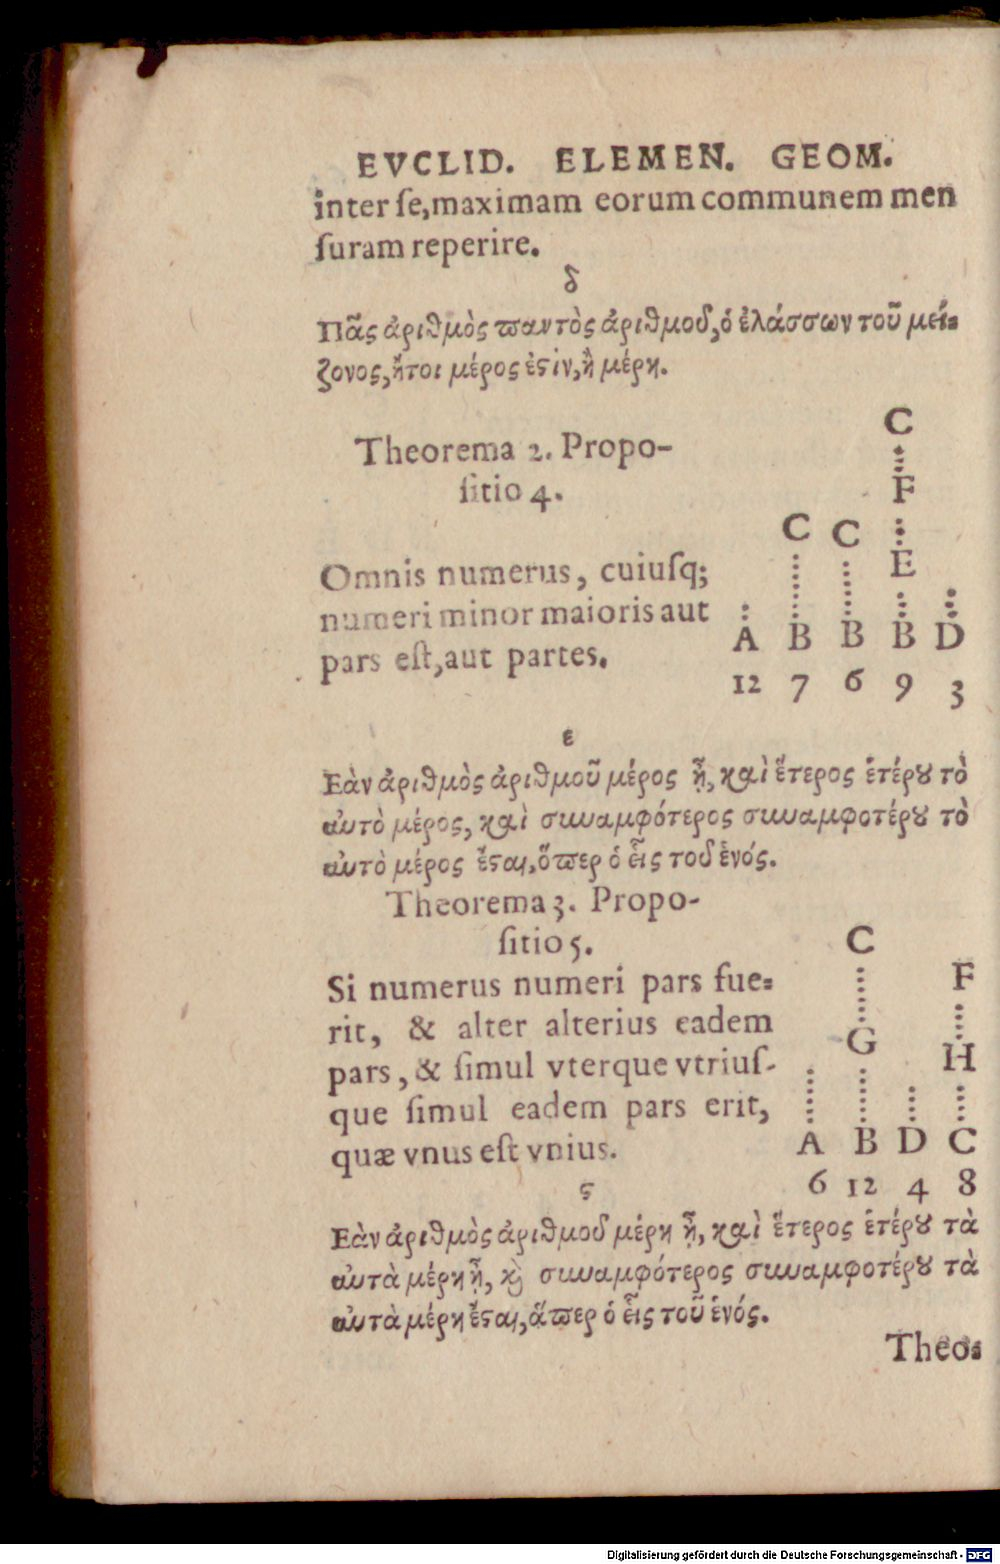 EVCLID. ELEMEN. GEOM.
inter ſe,maximam eorum communem men
ſuram reperire.
δ
Πᾶς ἀριθμὸς ϖαντὸς ἀριθμοῦ,ὁ ἐλάσσων τοῦ μεί-
ζονος,ἤτοι μέρος ἐϛὶν,ἢ μέρη.
Theorema 2. Propo-
ſitio 4.
Omnis numerus, cuiuſq;
numeri minor maioris aut
pars eſt,aut partes.
C
F
C C E
A B B B D
12 7 6 9 3
ε
Εὰν ἀριθμὸς ἀριθμοῦ μέρος ᾖ, καὶ ἕτερος ἑτέρȣ τὸ
αὐτὸ μέρος, καὶ συναμφότερος συναμφοτέρȣ τὸ
αὐτὸ μέρος ἔϛαι,ὅϖερ ὁ εἷς τοῦ ἑνός.
Theorema 3. Propo-
ſitio 5.
Si numerus numeri pars fue-
rit, & alter alterius eadem
pars, & ſimul vterque vtriuſ-
que ſimul eadem pars erit,
quæ vnus eſt vnius.
C
F
G
H
A B D C
6 12 4 8
ϛ
Εὰν ἀριθμὸς ἀριθμοῦ μέρη ᾖ, καὶ ἕτερος ἑτέρȣ τὰ
αὐτὰ μέρη ᾖ, ϗ̀ συναμφότερος συναμφοτέρȣ τὰ
αὐτὰ μέρη ἔϛαι,ἅϖερ ὁ εἷς τοῦ ἑνός.
Theo-
Digitalisierung gefördert durch die Deutsche Forschungsgemeinschaft - DFG